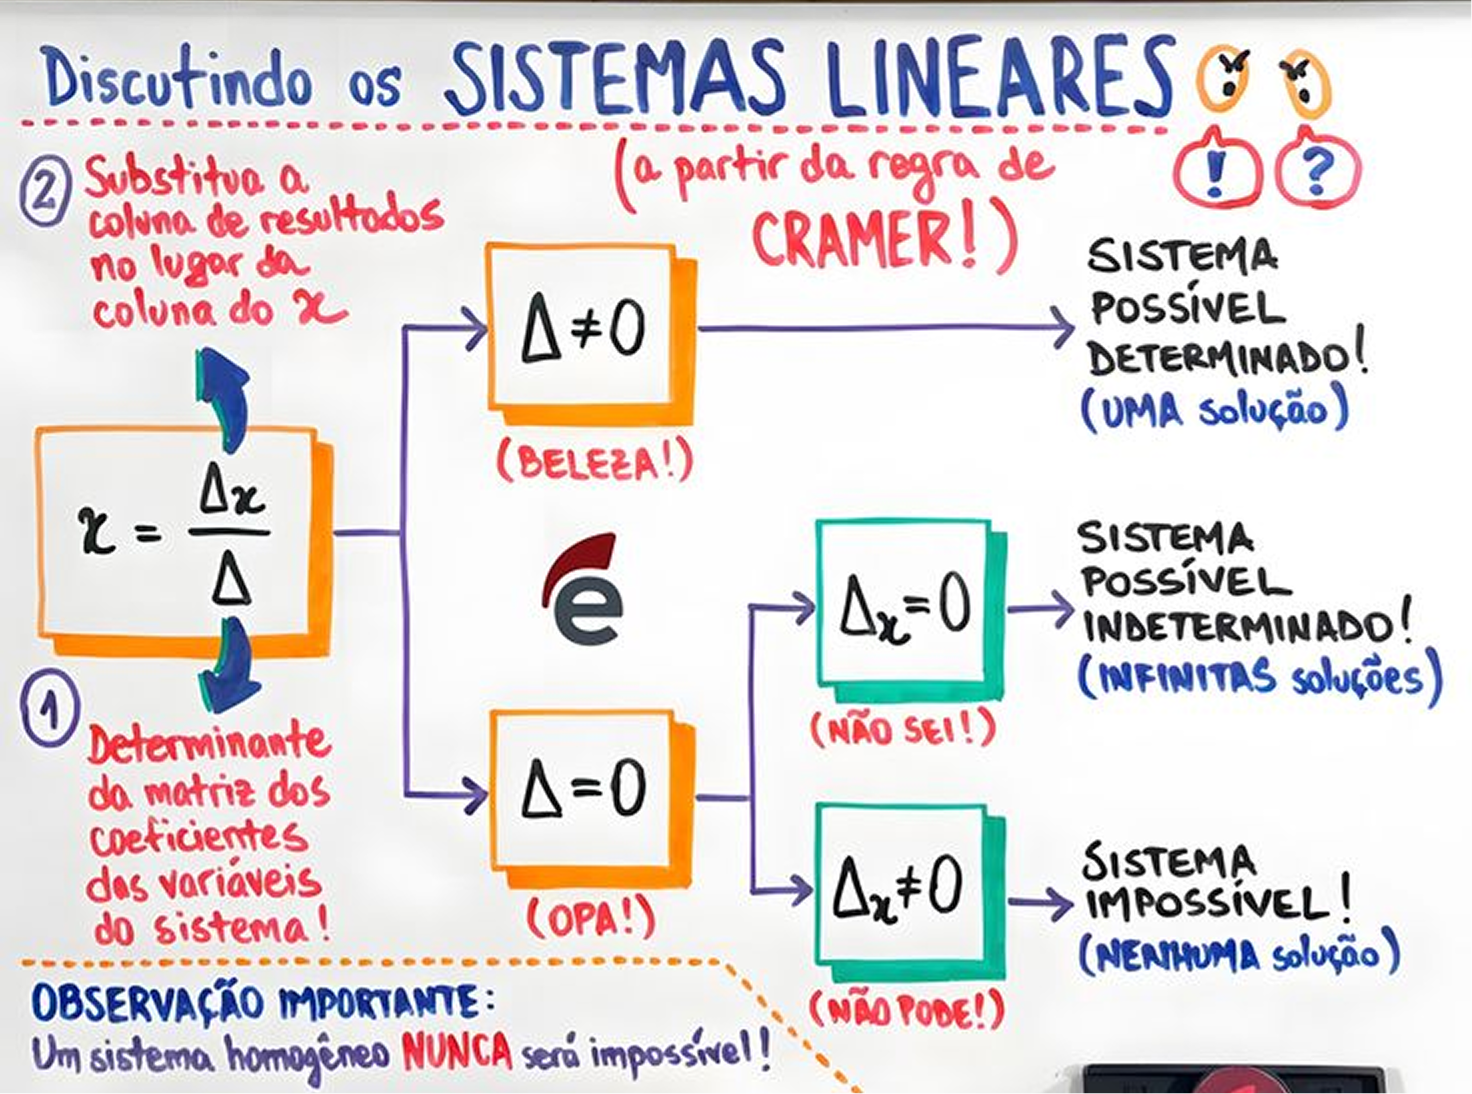 Discutindo os SISTEMAS LINEARES
(a partir da regra de
CRAMER!)
! ?
2 Substitua a
coluna de resultados
no lugar da
coluna do x
x = Δx / Δ
1 Determinante
da matriz dos
coeficientes
das variáveis
do sistema!
Δ ≠ 0
(BELEZA!)
SISTEMA
POSSÍVEL
DETERMINADO!
(UMA solução)
e
Δ = 0
(OPA!)
Δx = 0
(NÃO SEI!)
SISTEMA
POSSÍVEL
INDETERMINADO!
(INFINITAS soluções)
Δx ≠ 0
(NÃO PODE!)
SISTEMA
IMPOSSÍVEL!
(NENHUMA solução)
OBSERVAÇÃO IMPORTANTE:
Um sistema homogêneo NUNCA será impossível!